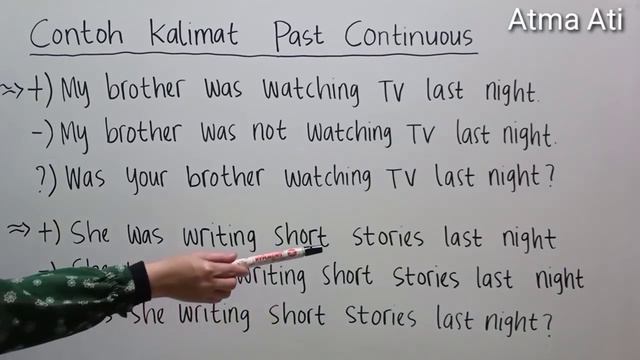 Atma Ati
Contoh Kalimat Past Continuous
=> +) My brother was watching TV last night.
-) My brother was not watching TV last night.
?) Was your brother watching TV last night?
=> +) She was writing short stories last night
writing short stories last night
she writing short stories last night?